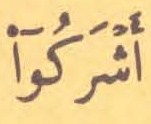 أَشْرَكُوٓا۟